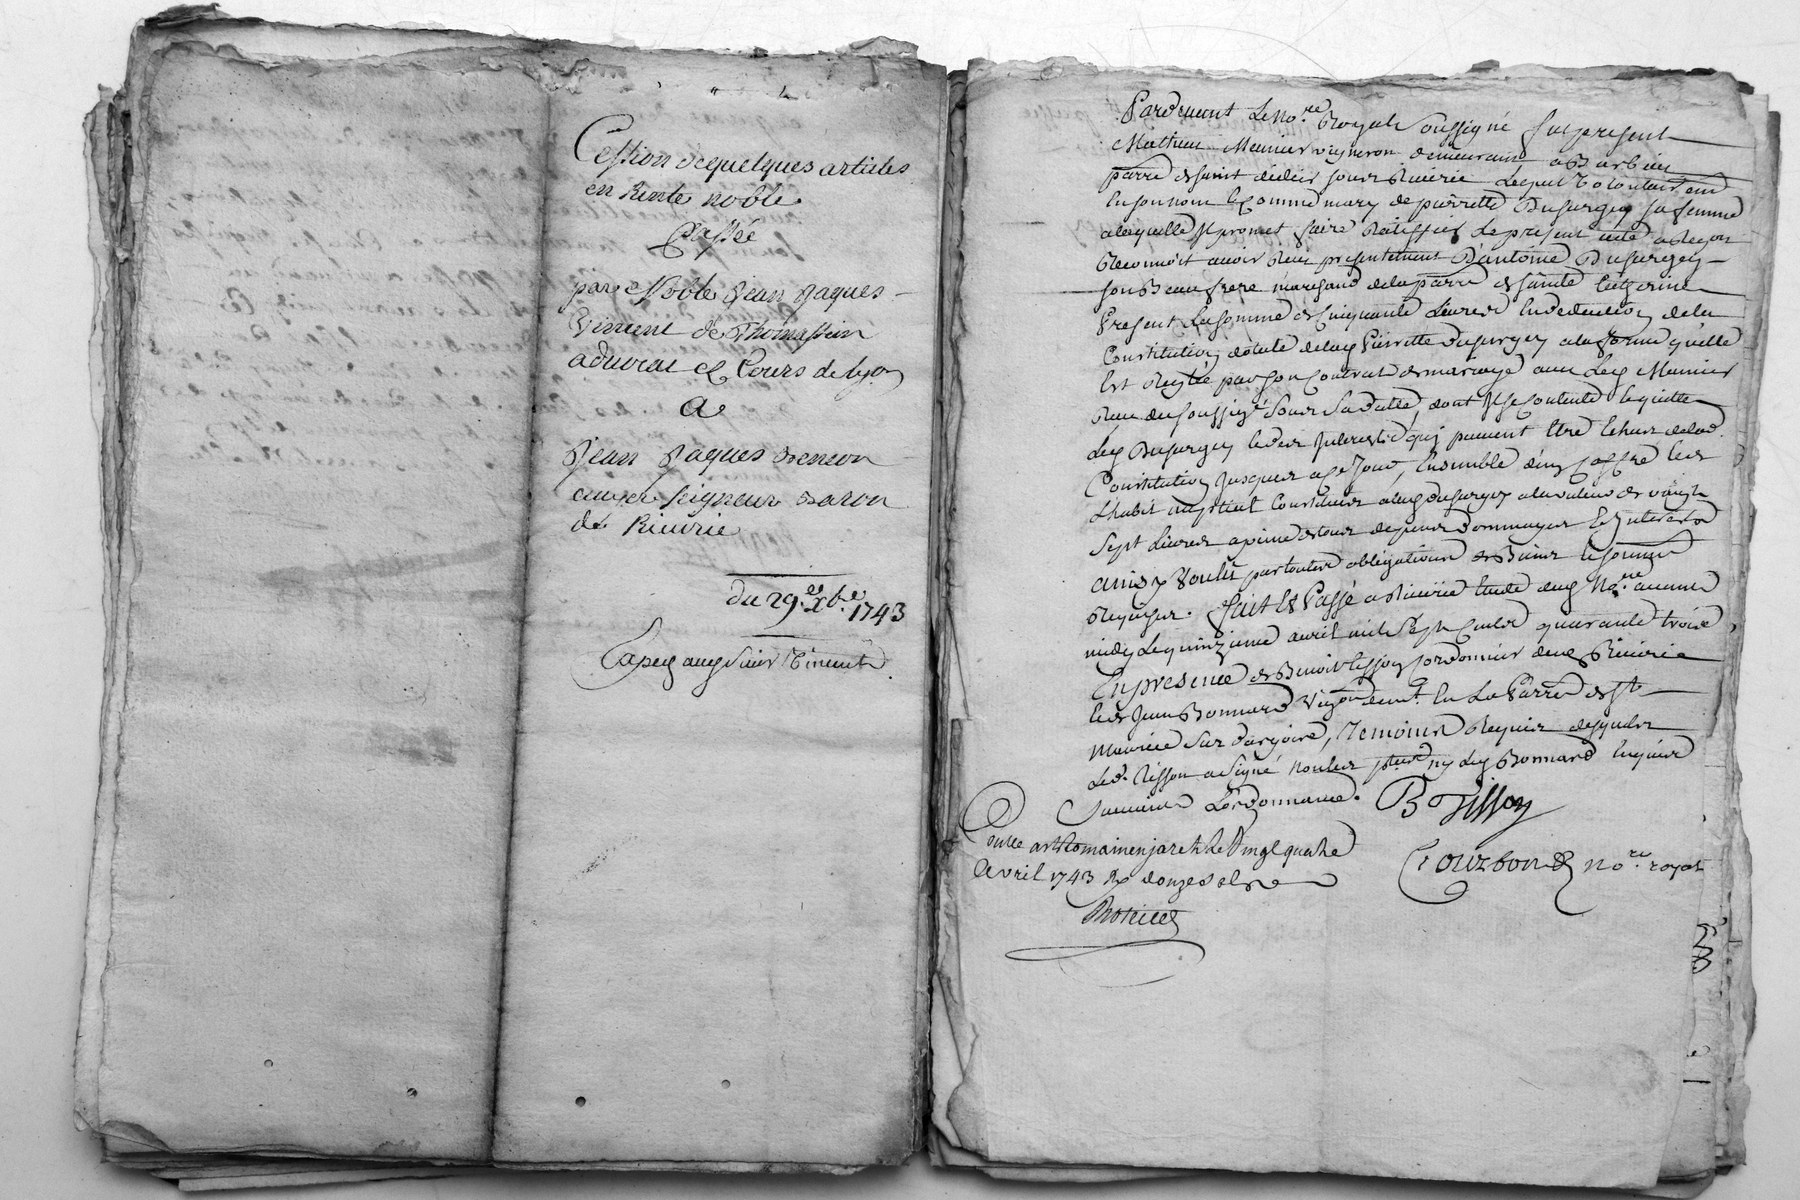 Cession de quelques articles
en Rente noble
Passée
par Noble Jean Jaques
Vincent de Thomassin
advocat es Cours de Lyon
a
Jean Jaques
seigneur Baron
de Riverie
du 29.e Xb.re 1743
Vincent
Pardevant Le No.re Royal Soussigné fut present
Mathieu Meunier vigneron demeurant a Barbieu
parre de saint didier sous Riverie Lequel Volontairem
En son nom Et Comme mary de pierrette Dusurgey sa femme
a laquelle Il promet faire Ratiffier Le present acte a
Reconnoit avoir Receu presentement D'antoine Dusurgey
son Beau frere marchand de la parre de sainte Catherine
Present La somme de Cinquante Livres En deduction de la
Constitution dotale de lad Pierrette Dusurgey a la forme qu'elle
Est Reglée par son Contrat de mariage avec Led Meunier
Receu du soussigné Sous Sa datte, dont Il se Contente Et quitte
Led Dusurgey Et des Interests qui peuvent Etre Echus de lad.
Constitution Jusques a ce Jour, Ensemble d'un Coffre Et
habit Constitués a lad Dusurgey a la valeur de vingt
Sept Livres a peine de tous depens dommages Et Interests
Ainsy Voulu par toutes obligations de Biens
fait Et Passé a Riverie Etude dud No.re avant
midy Le quinzieme avril mil Sept Cents quarante trois
En presence de Benoit Tisson Cordonnier dud Riverie
Et de Jean Bonnard vigon demt. En La Parre de St
Maurice Sur dargoire, Temoins Requis desquels
Led. Tisson a Signé non les parties ny Led Bonnard Enquis
Suivant L'ordonnance.
B Tisson
Con.lle a St Romain en jaret Le Vingt quatre
Avril 1743 R. douze sols
Courbon No.re royal